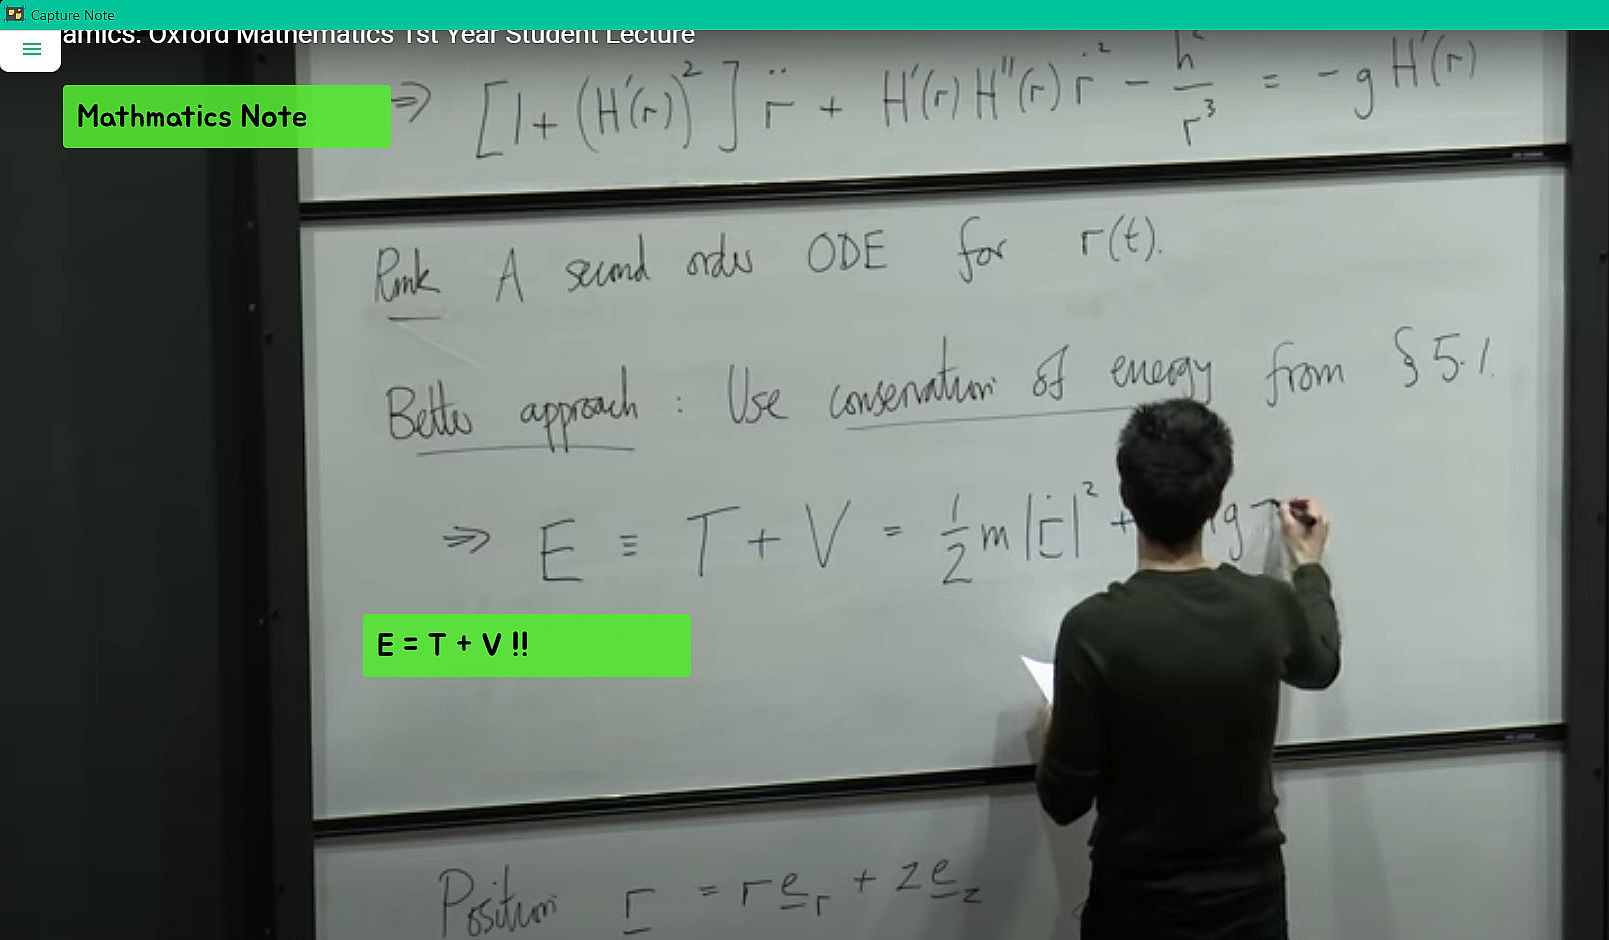 Capture Note
amics: Oxford Mathematics 1st Year Student Lecture
Mathmatics Note
⇒ [1 + (H'(r))²] r̈ + H'(r) H''(r) ṙ² − h²/r³ = −g H'(r)
Rmk A second order ODE for r(t).
Better approach : Use conservation of energy from § 5.1.
⇒ E ≡ T + V = ½ m |ṙ|² + g
E = T + V !!
Position r = r e_r + z e_z